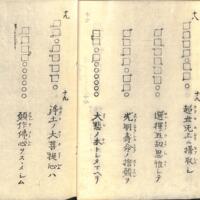 十八
超世无上ニ攝取シ
選擇五劫思惟シテ
光明壽命ノ誓願ヲ
大悲ノ本トシタマヘリ
十九
十九
淨土ノ大菩提心ハ
願作佛心ヲスヽメシム